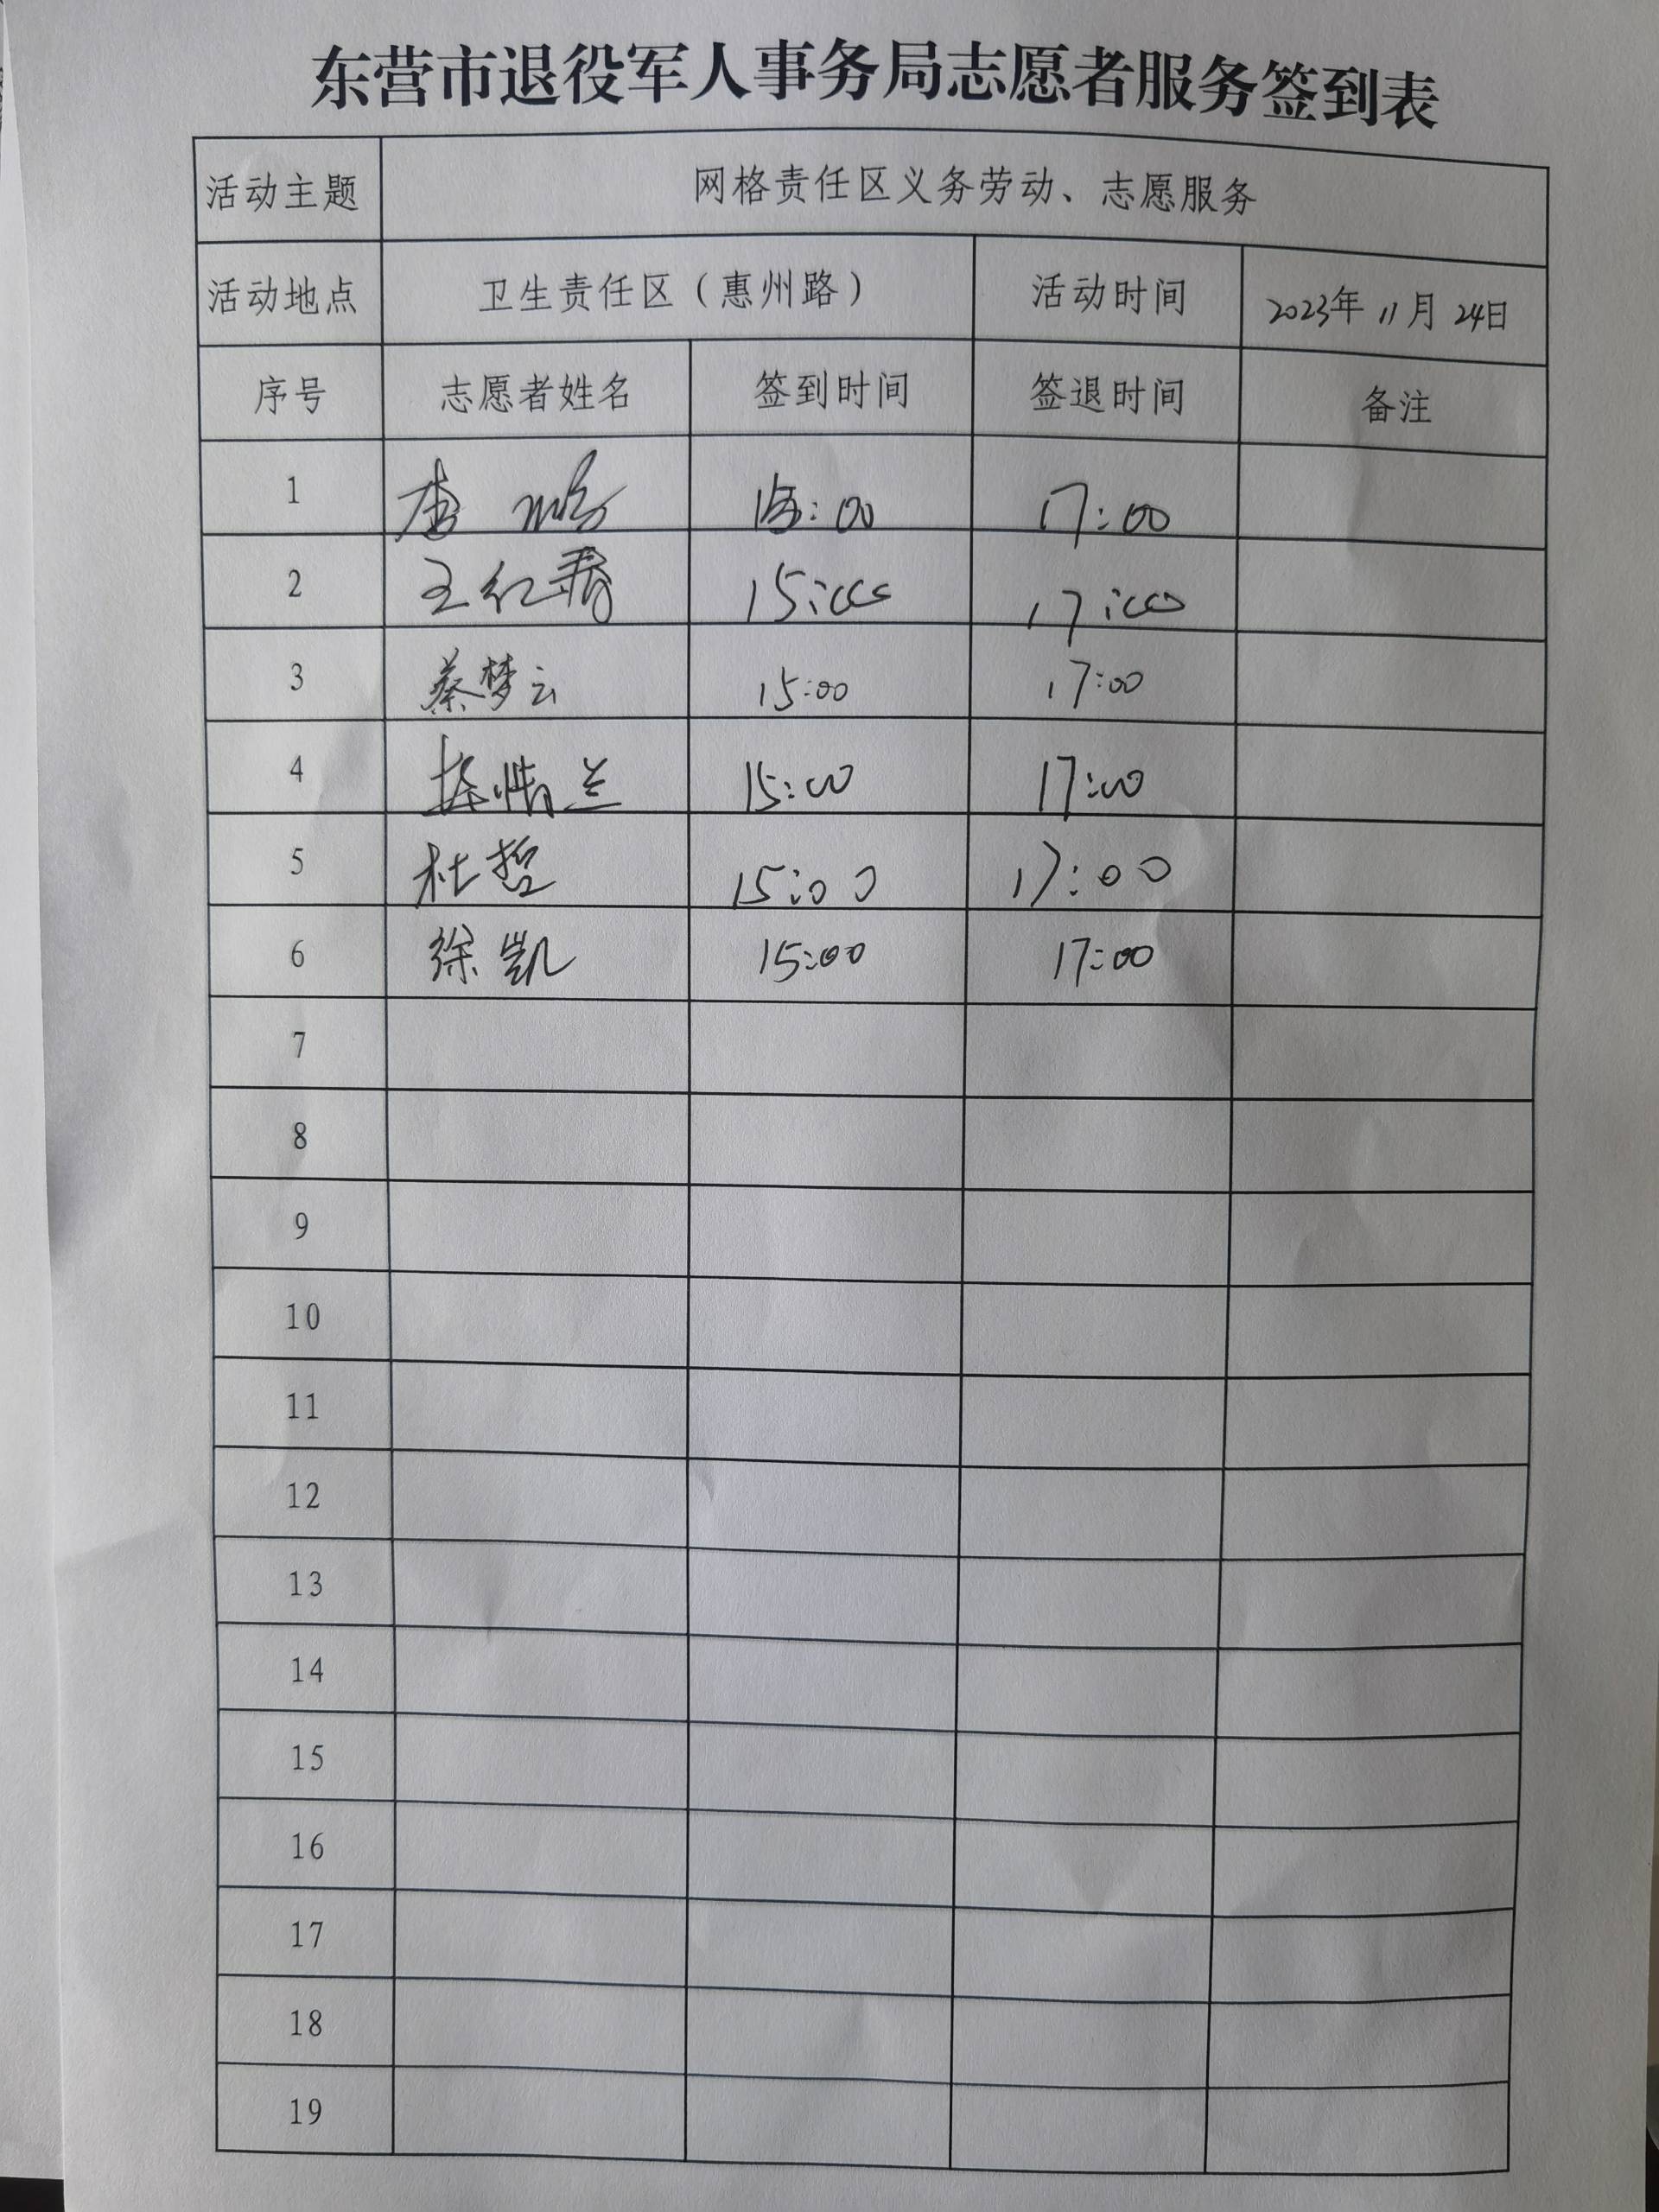 东营市退役军人事务局志愿者服务签到表
活动主题 网格责任区义务劳动、志愿服务
活动地点 卫生责任区（惠州路） 活动时间 2023年 11月 24日
序号 志愿者姓名 签到时间 签退时间 备注
1 李 15:00 17:00
2 王红霞 15:00 17:00
3 蔡梦云 15:00 17:00
4 15:00 17:00
5 杜哲 15:00 17:00
6 徐凯 15:00 17:00
7
8
9
10
11
12
13
14
15
16
17
18
19